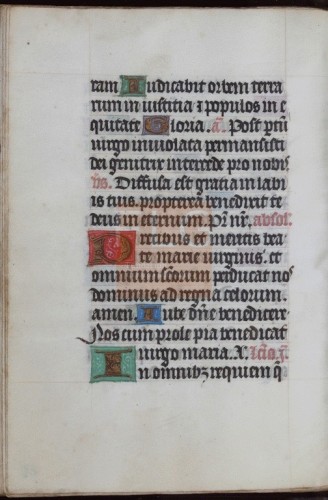 ram Iudicabit orbem terra
rum in iustitia ⁊ populos in e
quitate Gloria. a. Post partū
uirgo inuiolata permansisti
dei genitrix intercede pro nobis
vs. Diffusa est gratia in labi
is tuis. propterea benedixit te
deus in eternum. Pr nr. absol.
Precibus et meritis bea
te marie uirginis. et
omnium scōrum perducat nos
dominus ad regna celorum.
amen. Iube dn̄e benedicere
Nos cum prole pia benedicat
uirgo maria. A. lcio ȷ.
In omnibꝫ requiem q̄